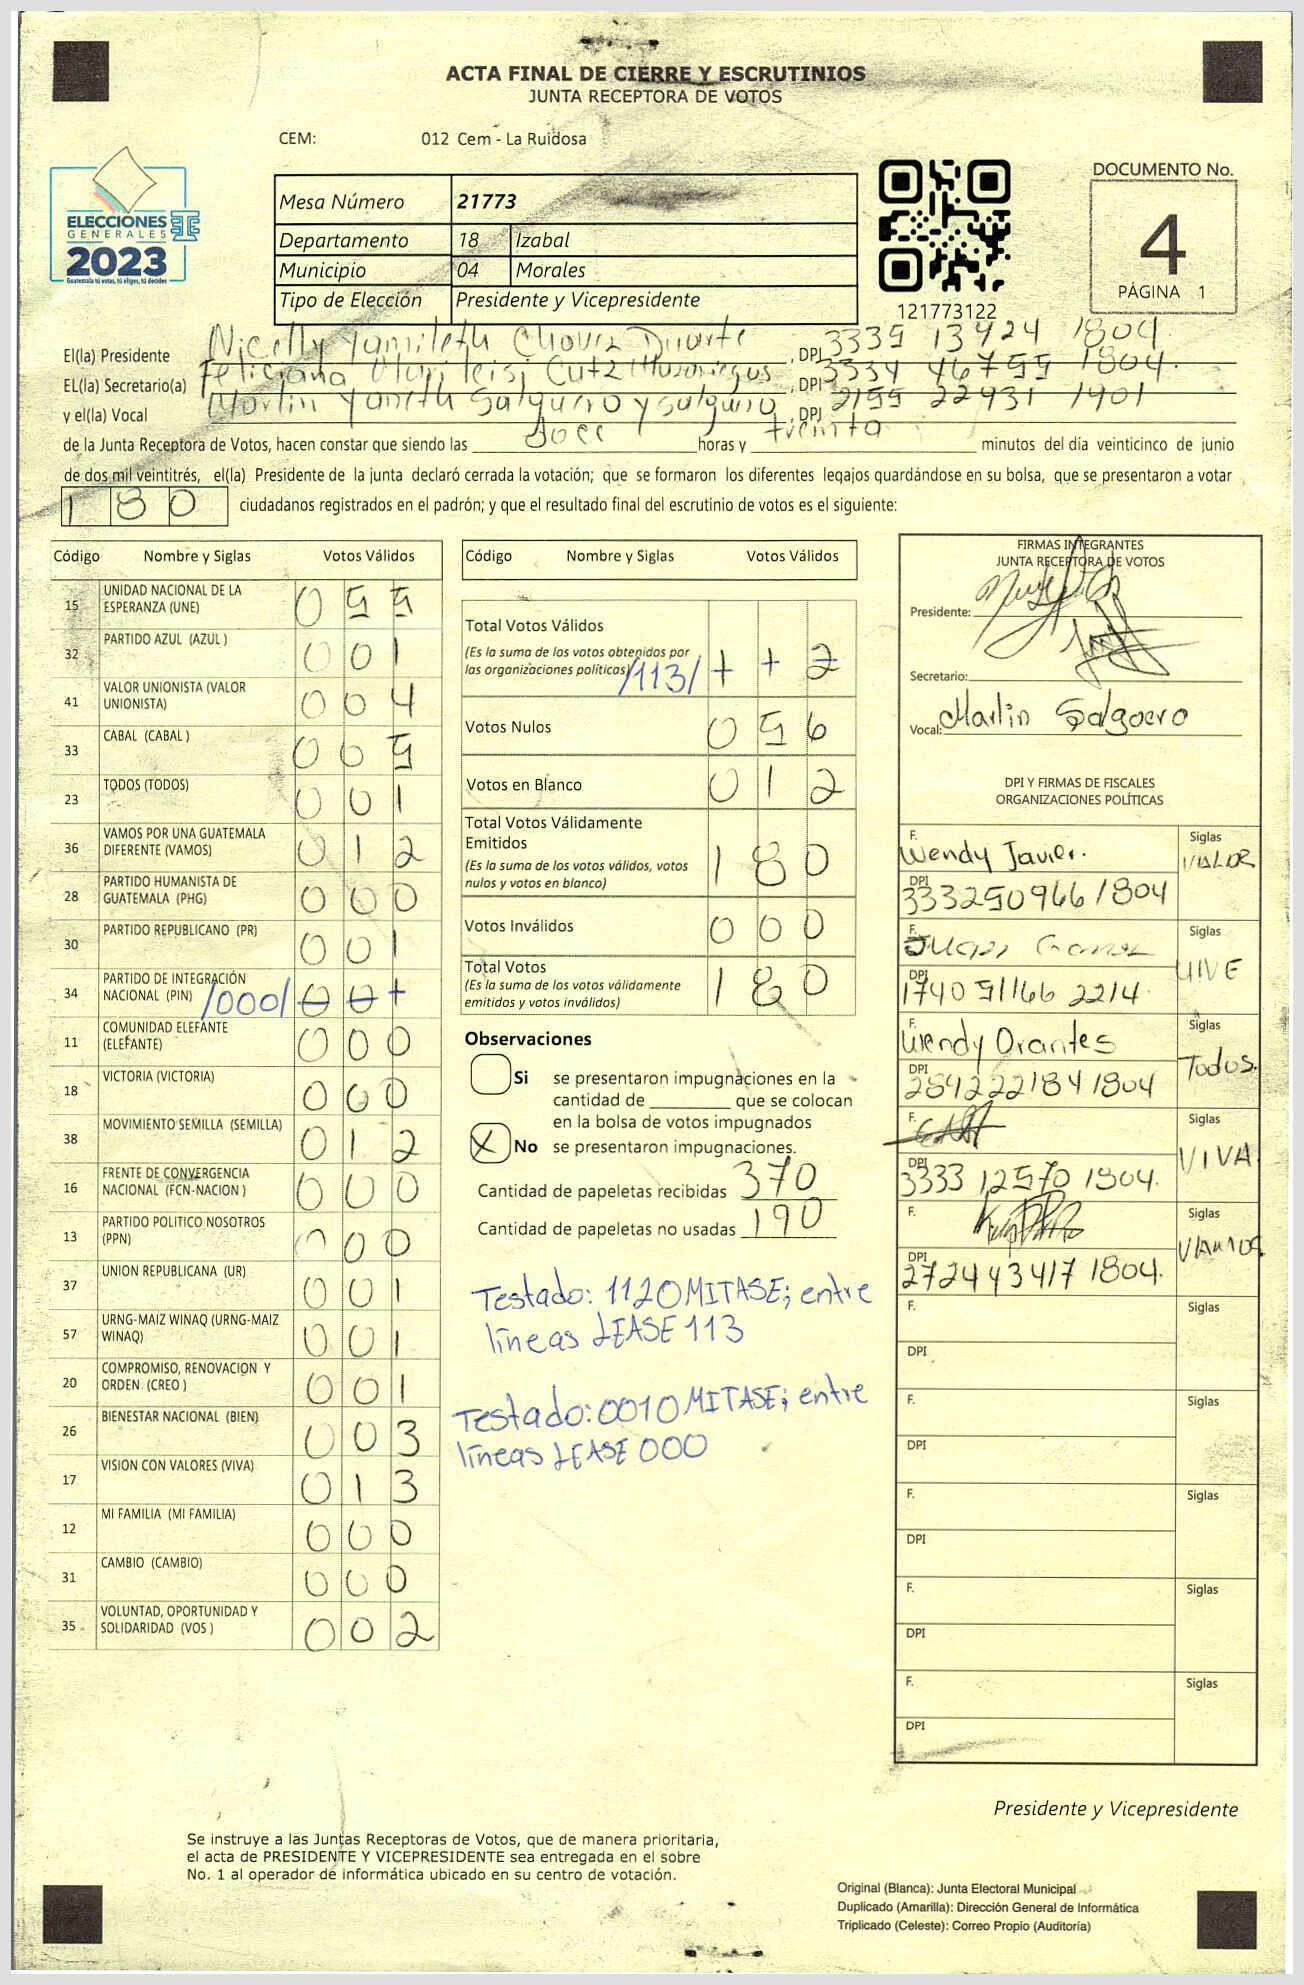 ACTA FINAL DE CIERRE Y ESCRUTINIOS
JUNTA RECEPTORA DE VOTOS
CEM: 012 Cem - La Ruidosa
ELECCIONES
GENERALES
2023
Guatemala tú votas, tú eliges, tú decides
Mesa Número 21773
Departamento 18 Izabal
Municipio 04 Morales
Tipo de Elección Presidente y Vicepresidente
121773122
DOCUMENTO No.
4
PÁGINA 1
El(la) Presidente Nicelly Yamileth Chavez Duarte, DPI 3339 13424 1804.
EL(la) Secretario(a) Feliciana Cutz, DPI 3334 46755 1804.
y el(la) Vocal Marlin Yaneth Salguero y Salguero, DPI 2155 22431 1901
de la Junta Receptora de Votos, hacen constar que siendo las doce horas y treinta minutos del día veinticinco de junio
de dos mil veintitrés, el(la) Presidente de la junta declaró cerrada la votación; que se formaron los diferentes legajos guardándose en su bolsa, que se presentaron a votar
180 ciudadanos registrados en el padrón; y que el resultado final del escrutinio de votos es el siguiente:
Código Nombre y Siglas Votos Válidos
15 UNIDAD NACIONAL DE LA ESPERANZA (UNE) 055
32 PARTIDO AZUL (AZUL ) 001
41 VALOR UNIONISTA (VALOR UNIONISTA) 004
33 CABAL (CABAL ) 005
23 TODOS (TODOS) 001
36 VAMOS POR UNA GUATEMALA DIFERENTE (VAMOS) 012
28 PARTIDO HUMANISTA DE GUATEMALA (PHG) 000
30 PARTIDO REPUBLICANO (PR) 001
34 PARTIDO DE INTEGRACIÓN NACIONAL (PIN) /000/ 001
11 COMUNIDAD ELEFANTE (ELEFANTE) 000
18 VICTORIA (VICTORIA) 000
38 MOVIMIENTO SEMILLA (SEMILLA) 012
16 FRENTE DE CONVERGENCIA NACIONAL (FCN-NACION ) 000
13 PARTIDO POLITICO NOSOTROS (PPN) 000
37 UNION REPUBLICANA (UR) 001
57 URNG-MAIZ WINAQ (URNG-MAIZ WINAQ) 001
20 COMPROMISO, RENOVACION Y ORDEN (CREO ) 001
26 BIENESTAR NACIONAL (BIEN) 003
17 VISION CON VALORES (VIVA) 013
12 MI FAMILIA (MI FAMILIA) 000
31 CAMBIO (CAMBIO) 000
35 VOLUNTAD, OPORTUNIDAD Y SOLIDARIDAD (VOS ) 002
Código Nombre y Siglas Votos Válidos
Total Votos Válidos
(Es la suma de los votos obtenidos por
las organizaciones políticas) /113/ 112
Votos Nulos 056
Votos en Blanco 012
Total Votos Válidamente
Emitidos
(Es la suma de los votos válidos, votos
nulos y votos en blanco) 180
Votos Inválidos 000
Total Votos
(Es la suma de los votos válidamente
emitidos y votos inválidos) 180
Observaciones
Si se presentaron impugnaciones en la
cantidad de ________ que se colocan
en la bolsa de votos impugnados
X No se presentaron impugnaciones.
Cantidad de papeletas recibidas 370
Cantidad de papeletas no usadas 190
Testado: 112 OMITASE; entre
líneas LEASE 113
Testado: 001 OMITASE; entre
líneas LEASE 000
FIRMAS INTEGRANTES
JUNTA RECEPTORA DE VOTOS
Presidente:
Secretario:
Vocal: Marlin Salguero
DPI Y FIRMAS DE FISCALES
ORGANIZACIONES POLÍTICAS
F. Wendy Javier. Siglas VALOR
DPI 333250966 1804
F. Juan Siglas UNE
DPI 1740 51166 2214
F. Wendy Orantes Siglas Todos.
DPI 284222184 1804
F. Siglas VIVA
DPI 3333 12570 1804.
F. Siglas VAMOS
DPI 272443417 1804.
F. Siglas
DPI
F. Siglas
DPI
F. Siglas
DPI
F. Siglas
DPI
F. Siglas
DPI
Presidente y Vicepresidente
Se instruye a las Juntas Receptoras de Votos, que de manera prioritaria,
el acta de PRESIDENTE Y VICEPRESIDENTE sea entregada en el sobre
No. 1 al operador de informática ubicado en su centro de votación.
Original (Blanca): Junta Electoral Municipal
Duplicado (Amarilla): Dirección General de Informática
Triplicado (Celeste): Correo Propio (Auditoría)